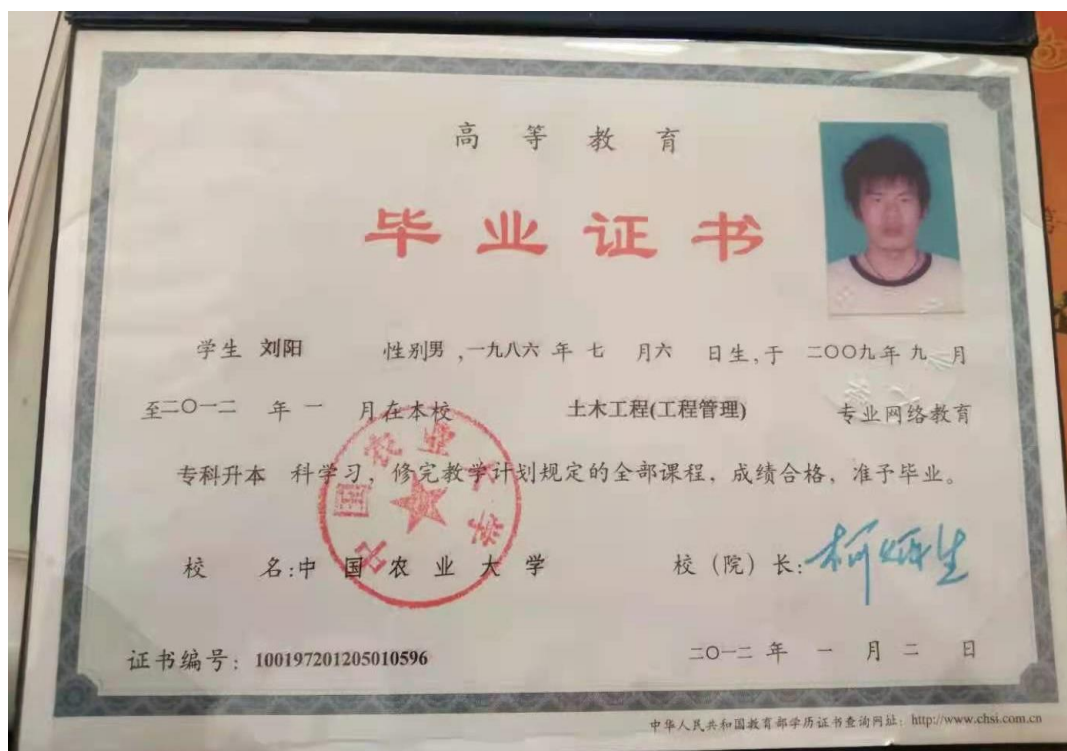 高等教育
毕业证书
学生 刘阳 性别男,一九八六年七月六日生,于二〇〇九年九月
至二〇一二年一月在本校 土木工程(工程管理) 专业网络教育
专科升本科学习,修完教学计划规定的全部课程,成绩合格,准予毕业。
中国农业大学
校名:中国农业大学 校(院)长:柯炳生
证书编号:100197201205010596 二〇一二年一月二日
中华人民共和国教育部学历证书查询网址:http://www.chsi.com.cn